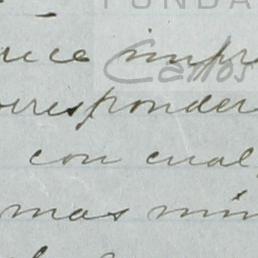 FUNDA
rice impr
Carlos
orresponder
con cual
mas min